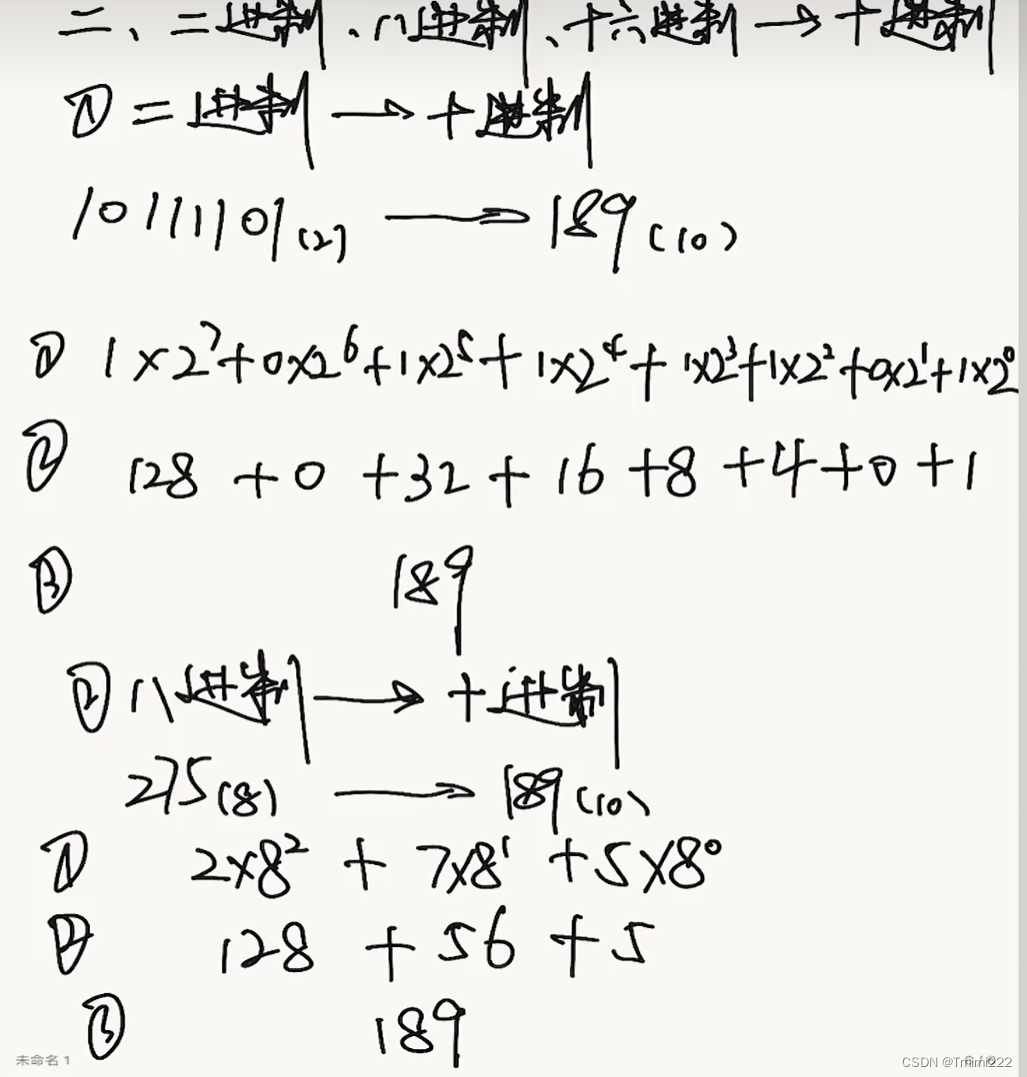 二、二进制、八进制、十六进制 → 十进制
① 二进制 → 十进制
10111101(2) → 189(10)
① 1×2⁷+0×2⁶+1×2⁵+1×2⁴+1×2³+1×2²+0×2¹+1×2⁰
② 128 + 0 + 32 + 16 + 8 + 4 + 0 + 1
③ 189
② 八进制 → 十进制
275(8) → 189(10)
① 2×8² + 7×8¹ + 5×8⁰
② 128 + 56 + 5
③ 189
未命名 1
CSDN @Tmimi222